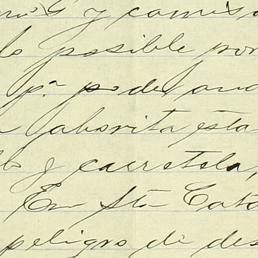 y camis
lo posible por
pa poder and
ahorita esta
y carretela,
En Sta Cata
peligro de des